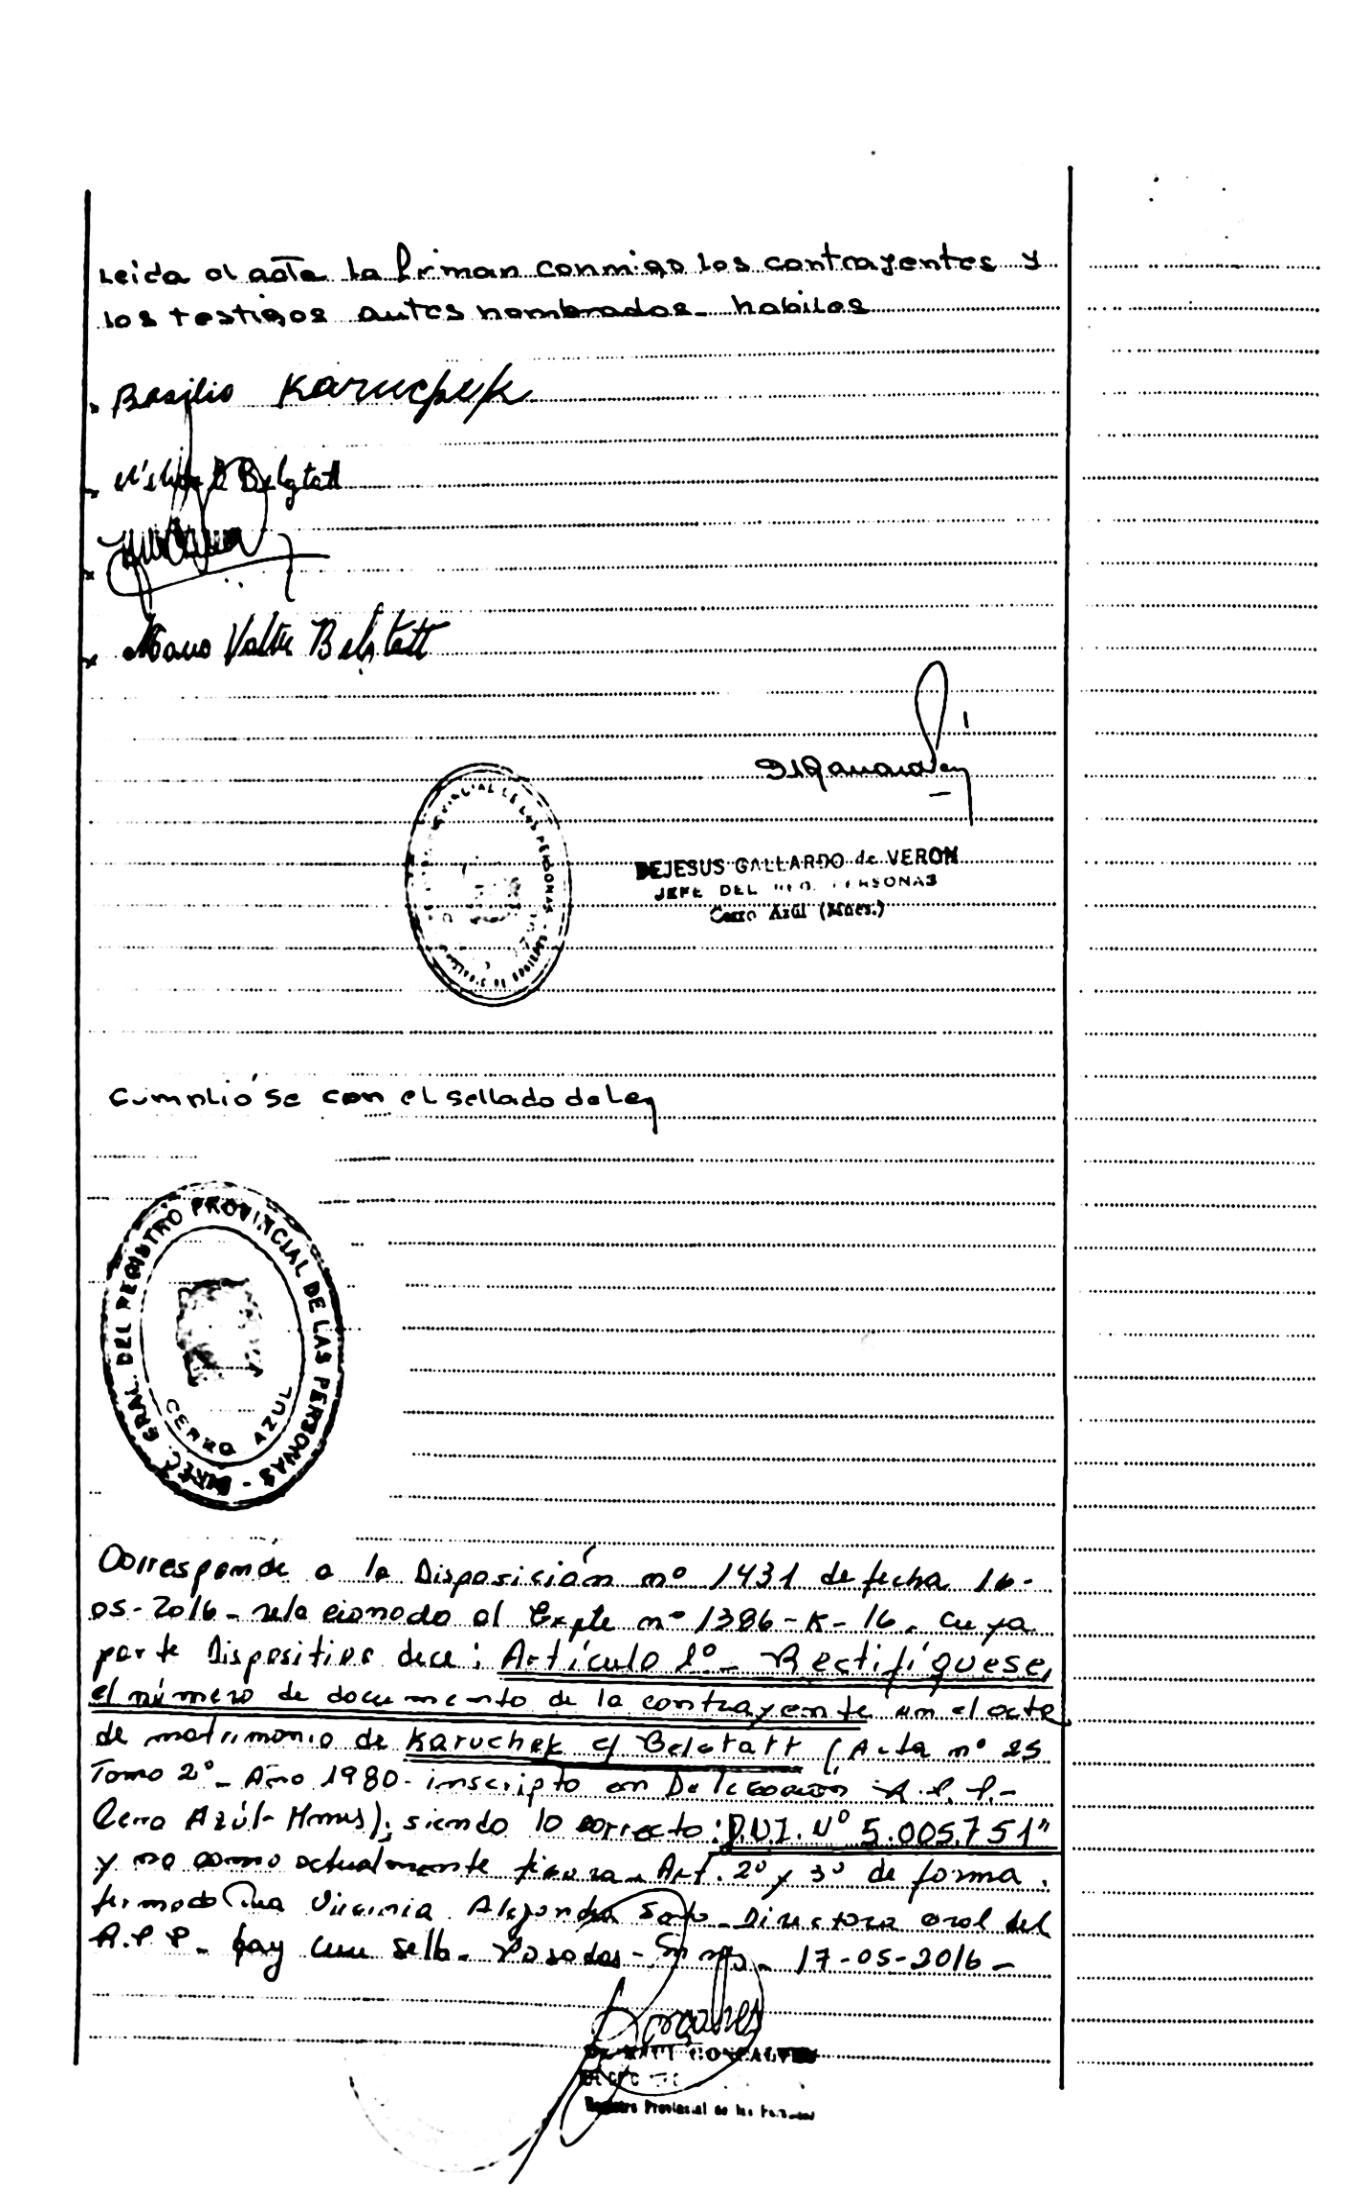 Leida el acta la firman conmigo los contrayentes y
los testigos antes nombrados - habiles
Basilio Karuchek
Belstatt
Mario Valter Belstatt
DEJESUS GALLARDO de VERON
JEFE DEL REG. PERSONAS
Cerro Azúl (Mnes.)
Cumplió se con el sellado de Ley
DIREC. GRAL. DEL REGISTRO PROVINCIAL DE LAS PERSONAS -
CERRO AZUL
Corresponde a la Disposición nº 1431 de fecha 16-
05-2016 - relacionado al Expte nº 1386-K-16. cuya
parte Dispositiva dice: Artículo 1º - Rectifíquese,
el número de documento de la contrayente en el acta
de matrimonio de Karuchek c/ Belstatt (Acta nº 25
Tomo 2º - Año 1980 - inscripto en Delegación R.P.P. -
Cerro Azúl - Mnes); siendo lo correcto: D.N.I. Nº 5.005.751"
y no como actualmente figura. Art. 2º y 3º de forma.
firmado Virginia Alejandra Soto - Directora Gral del
R.P.P. - hay un sello - Posadas - Mnes - 17-05-2016 -
GONCALVES
Registro Provincial de las Personas